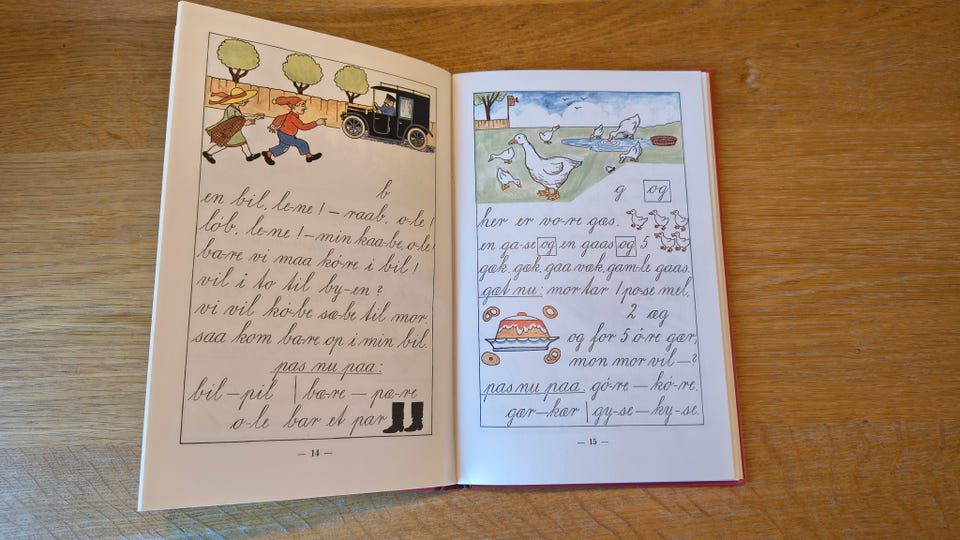 b
en bil, le-ne! – raab, o-le!
löb, le-ne! – min kaa-be, o-le!
ba-re vi maa kö-re i bil!
vil i to til by-en?
vi vil kö-be sæ-be til mor.
saa kom bæ-re op i min bil.
pas nu paa:
bil – pil | bæ-re – pæ-re
o-le bar et par
– 14 –
g og
her er vo-re gæs.
en ga-se og en gaas og 5
gæk, gæk, gaa væk, gam-le gaas.
gæt nu: mor tar 1 po-se mel,
2 æg
og for 5 ö-re gær,
mon mor vil –?
pas nu paa: gö-re – kö-re,
gær – kær | gy-se – ky-se.
– 15 –